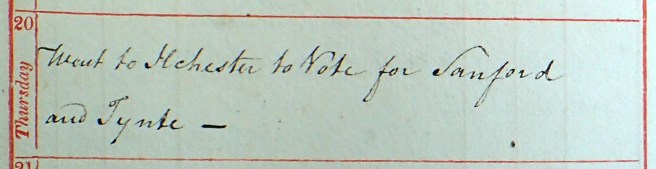 20
Thursday
Went to Ilchester to Vote for Sanford
and Tynte —
21